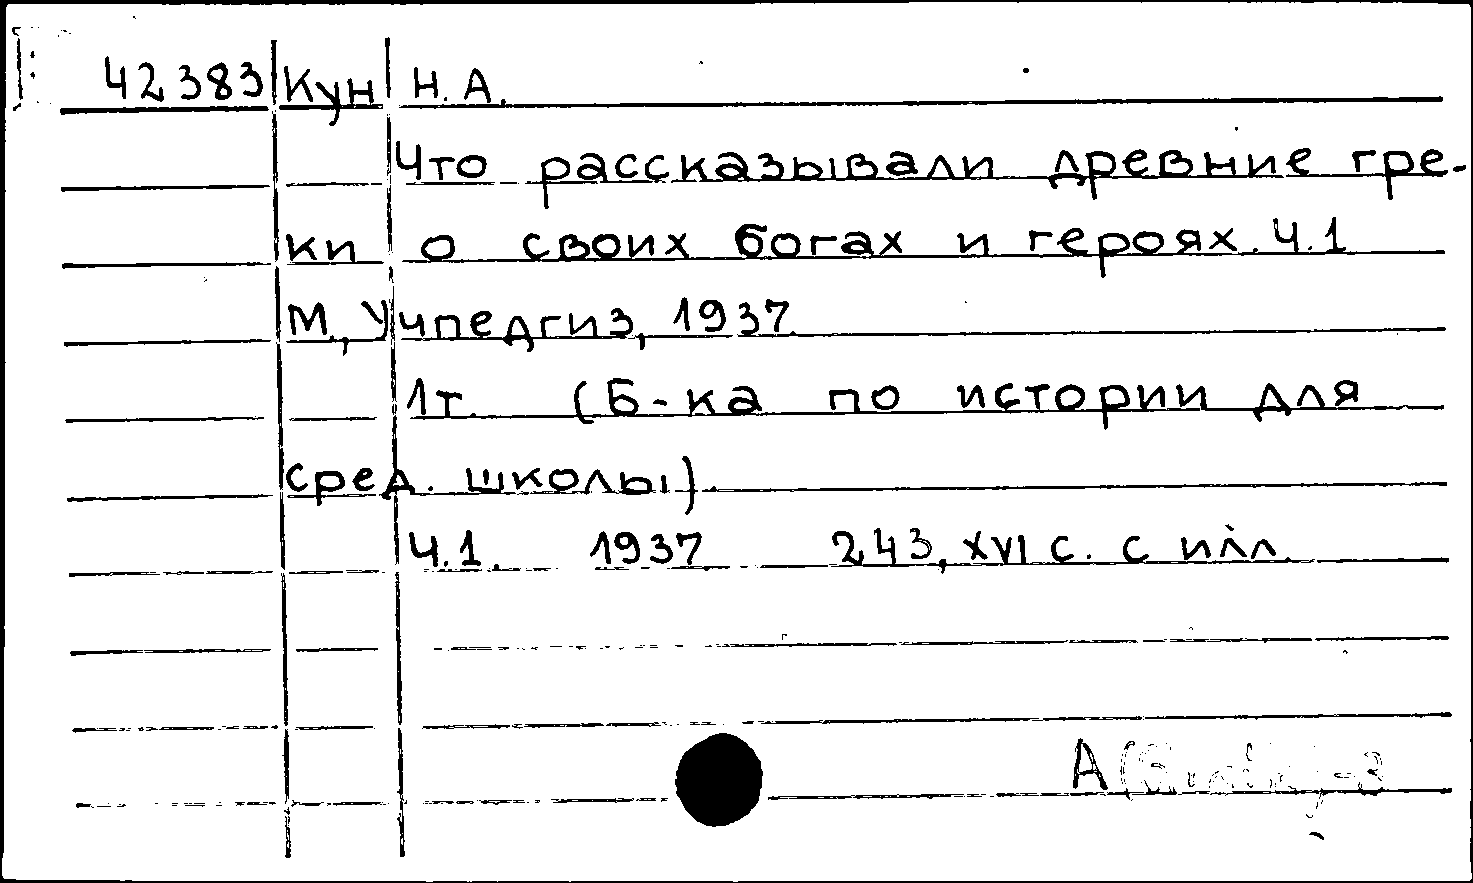 42383 Кун Н.А.
Что рассказывали древние гре-
ки о своих богах и героях. Ч.1
М., Учпедгиз, 1937.
1т. (Б-ка по истории для
сред. школы).
Ч.1. 1937 243, XVI с. с илл.
А -3